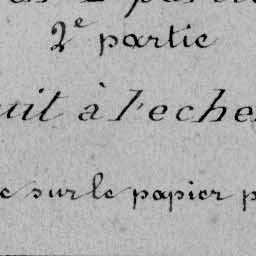 2e partie
uit à l'eche
e sur le papier p